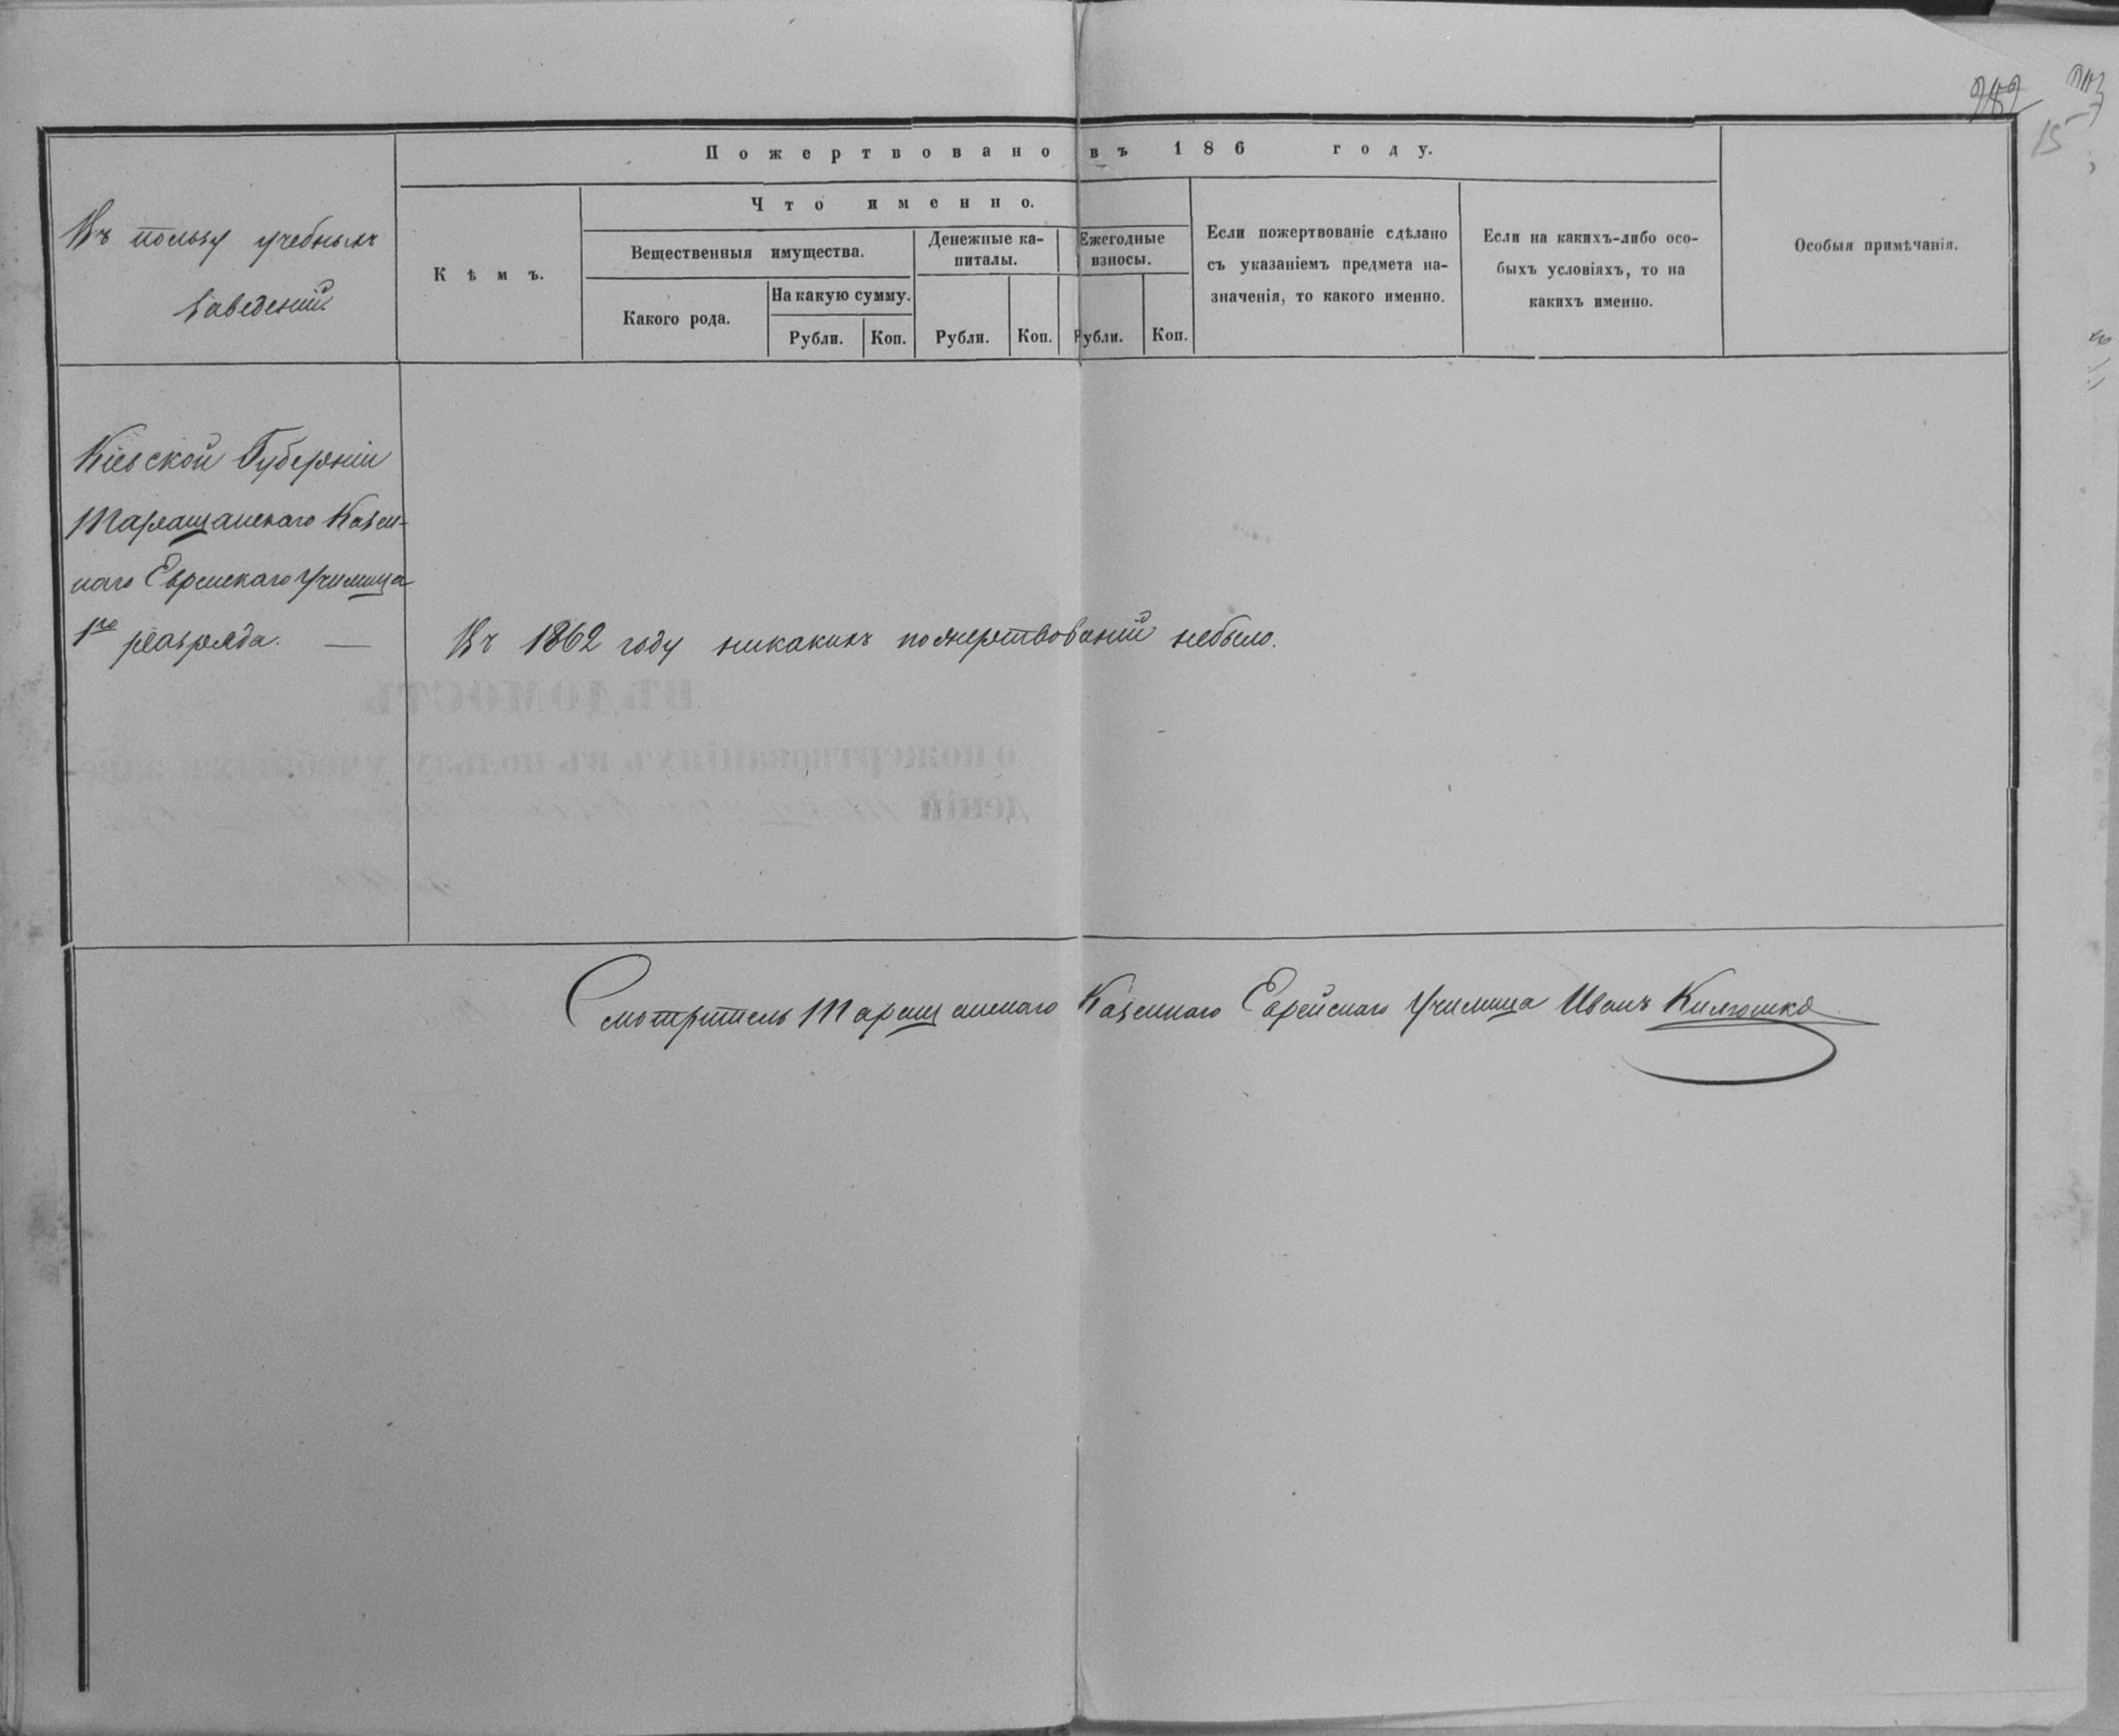 Пожертвовано въ 186 году.
Въ пользу учебныхъ
заведеній.
Кѣмъ.
Что именно.
Вещественныя имущества.
Какого рода.
На какую сумму.
Рубли. Коп.
Денежные ка-
питалы.
Рубли. Коп.
Ежегодные
взносы.
Рубли. Коп.
Если пожертвованіе сдѣлано
съ указаніемъ предмета на-
значенія, то какого именно.
Если на какихъ-либо осо-
быхъ условіяхъ, то на
какихъ именно.
Особыя примѣчанія.
Кіевской Губерніи
Таращанскаго Казен-
наго Еврейскаго Училища
1го разряда. —
Въ 1862 году никакихъ пожертвованій небыло.
Смотритель Таращанскаго Казеннаго Еврейскаго Училища Иванъ